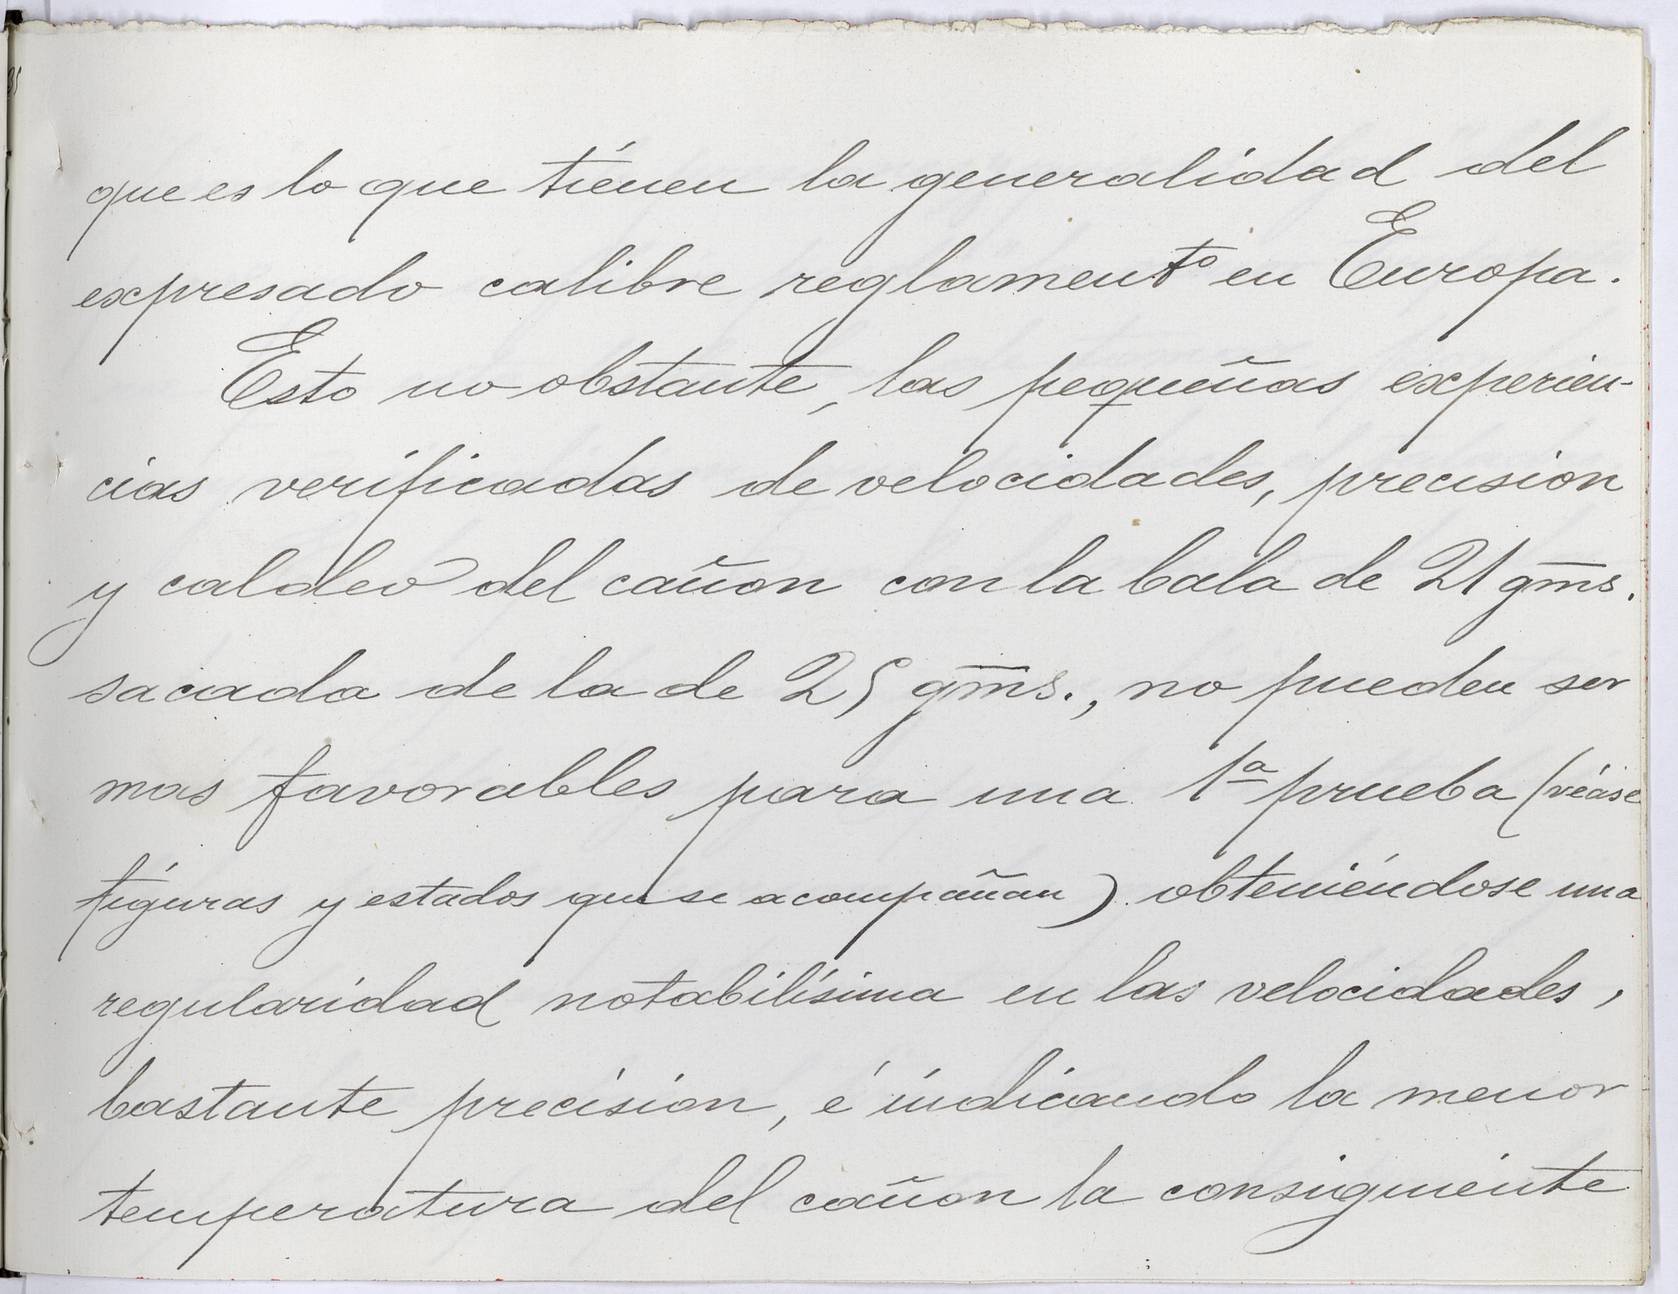 que es lo que tienen la generalidad del
expresado calibre reglamentº en Europa.
Esto no obstante, las pequeñas experien-
cias verificadas de velocidades, precision
y caldeo del cañon con la bala de 21 gms.
sacada de la de 25 gms., no pueden ser
mas favorables para una 1ª prueba (véase
figuras y estados que se acompañan) obteniéndose una
regularidad notabilísima en las velocidades,
bastante precision, é indicando la menor
temperatura del cañon la consiguiente